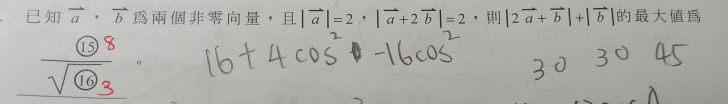 已知 $\vec{a}$，$\vec{b}$ 為兩個非零向量，且 $|\vec{a}|=2$，$|\vec{a}+2\vec{b}|=2$，則 $|2\vec{a}+\vec{b}|+|\vec{b}|$ 的最大值為
⑮ 8
√⑯ 3 。
16+4cos² -16cos²
30 30 45